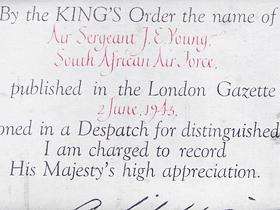 By the KING'S Order the name of
Air Sergeant J.E. Young,
South African Air Force,
published in the London Gazette
2 June, 1943.
oned in a Despatch for distinguished
I am charged to record
His Majesty's high appreciation.